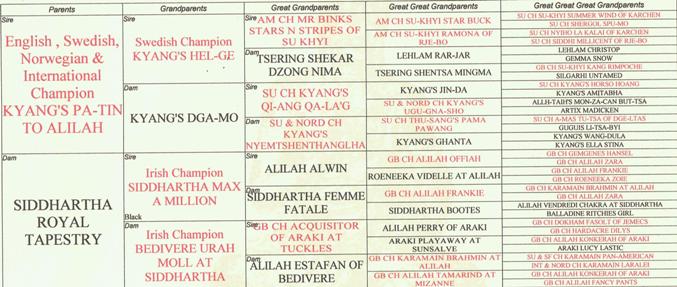 Parents Grandparents Great Grandparents Great Great Grandparents Great Great Great Grandparents
Sire
English , Swedish,
Norwegian &
International
Champion
KYANG'S PA-TIN
TO ALILAH
Dam
SIDDHARTHA
ROYAL
TAPESTRY
Sire
Swedish Champion
KYANG'S HEL-GE
Dam
KYANG'S DGA-MO
Sire
Irish Champion
SIDDHARTHA MAX
A MILLION
Black
Dam
Irish Champion
BEDIVERE URAH
MOLL AT
SIDDHARTHA
Sire
AM CH MR BINKS
STARS N STRIPES OF
SU KHYI
Dam
TSERING SHEKAR
DZONG NIMA
Sire
SU CH KYANG'S
QI-ANG QA-LA'G
Dam
SU & NORD CH
KYANG'S
NYEMTSHENTHANGLHA
Sire
ALILAH ALWIN
Dam
SIDDHARTHA FEMME
FATALE
Sire
GB CH ACQUISITOR
OF ARAKI AT
TUCKLES
Dam
ALILAH ESTAFAN OF
BEDIVERE
AM CH SU-KHYI STAR BUCK
AM CH SU-KHYI RAMONA OF
RJE-BO
LEHLAM RAR-JAR
TSERING SHENTSA MINGMA
KYANG'S JIN-DA
SU & NORD CH KYANG'S
UGU-GNA-SHO
SU CH THU-SANG'S PAMA
PAWANG
KYANG'S GHANTA
GB CH ALILAH OFFIAH
ROENEEKA VIDELLE AT ALILAH
GB CH ALILAH FRANKIE
SIDDHARTHA BOOTES
ALILAH PERRY OF ARAKI
ARAKI PLAYAWAY AT
SUNSALVE
GB CH KARAMAIN BRAHMIN AT
ALILAH
GB CH ALILAH TAMARIND AT
MIZANNE
SU CH SU-KHYI SUMMER WIND OF KARCHEN
SU CH SHERGOL SPU-MO
SU CH NYIHO LA KALAI OF KARCHEN
SU CH SIDDHI MILLICENT OF RJE-BO
LEHLAM CHRISTOP
GEMMA SNOW
GB CH SU-KHYI KANG RIMPOCHE
SILGARHI UNTAMED
SU CH KYANG'S HORSO HOANG
KYANG'S AMITABHA
ALLH-TAIH'S MON-ZA-CAN BUT-TSA
ARTIX MADICKEN
SU CH A-MAS TU-TSA OF DGE-LTAS
GUGUIS LI-TSA-BYI
KYANG'S WANG-DULA
KYANG'S ELLA STINA
GB CH GEMGENES HANSEL
GB CH ALILAH ZARA
GB CH ALILAH FRANKIE
GB CH ROENEEKA ZOIE
GB CH KARAMAIN BRAHMIN AT ALILAH
GB CH ALILAH ZARA
ALILAH VENDREDI CHAKRA AT SIDDHARTHA
BALLADINE RITCHIES GIRL
GB CH DOKHAM FASOLT OF JEMECS
GB CH HARDACRE DILYS
GB CH ALILAH KONKERAH OF ARAKI
ARAKI LUCY LASTIC
SU & SF CH KARAMAIN PAN-AMERICAN
INT & NORD CH KARAMAIN LARALEI
GB CH ALILAH KONKERAH OF ARAKI
GB CH ALILAH FANCY PANTS